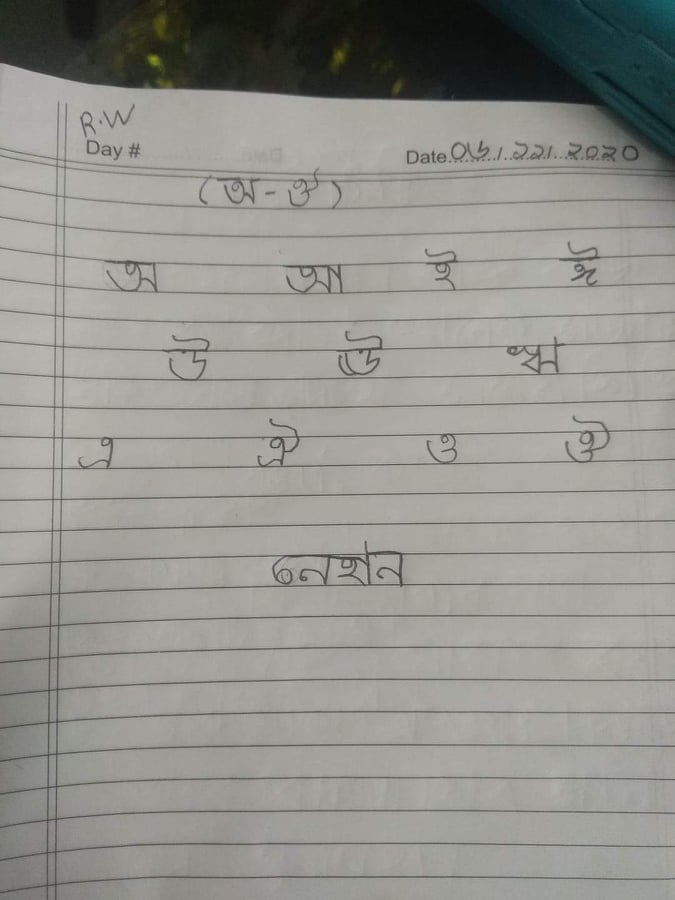 R.W
Day # Date ০৬/১২/২০২০
(অ-ঔ)
অ আ ই ঈ
উ ঊ ঋ
এ ঐ ও ঔ